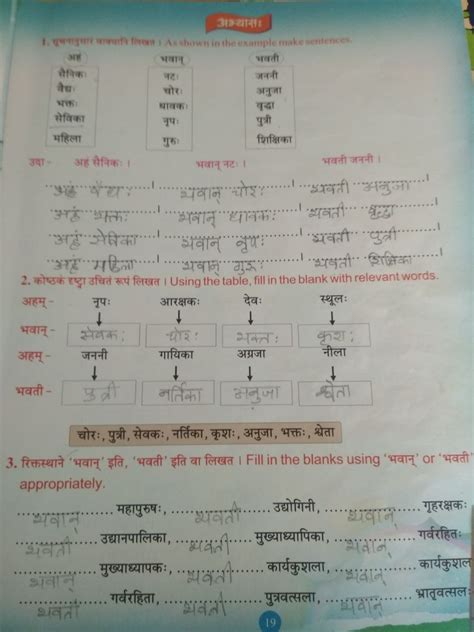 अभ्यासः
1. सूचनानुसारं वाक्यानि लिखत । As shown in the example make sentences.
अहं भवान् भवती
सैनिकः नटः जननी
वैद्यः चोरः अनुजा
भक्तः धावकः वृद्धा
सेविका नृपः पुत्री
महिला गुरुः शिक्षिका
उदा - अहं सैनिकः । भवान् नटः । भवती जननी ।
अहं वैद्यः । भवान् चोरः । भवती अनुजा
अहं भक्तः । भवान् धावकः । भवती वृद्धा
अहं सेविका भवान् नृपः भवती पुत्री
अहं महिला भवान् गुरुः भवती शिक्षिका
2. कोष्ठकं दृष्ट्वा उचितं रूपं लिखत । Using the table, fill in the blank with relevant words.
अहम् - नृपः आरक्षकः देवः स्थूलः
भवान् - सेवकः चोरः भक्तः कृशः
अहम् - जननी गायिका अग्रजा नीला
भवती - पुत्री नर्तिका अनुजा श्वेता
चोरः, पुत्री, सेवकः, नर्तिका, कृशः, अनुजा, भक्तः, श्वेता
3. रिक्तस्थाने 'भवान्' इति, 'भवती' इति वा लिखत । Fill in the blanks using 'भवान्' or 'भवती'
appropriately.
भवान् महापुरुषः, भवती उद्योगिनी, भवान् गृहरक्षकः
भवती उद्यानपालिका, भवती मुख्याध्यापिका, भवान् गर्वरहितः
भवान् मुख्याध्यापकः, भवती कार्यकुशला, भवान् कार्यकुशल
भवती गर्वरहिता, भवती पुत्रवत्सला, भवती भ्रातृवत्सल
19